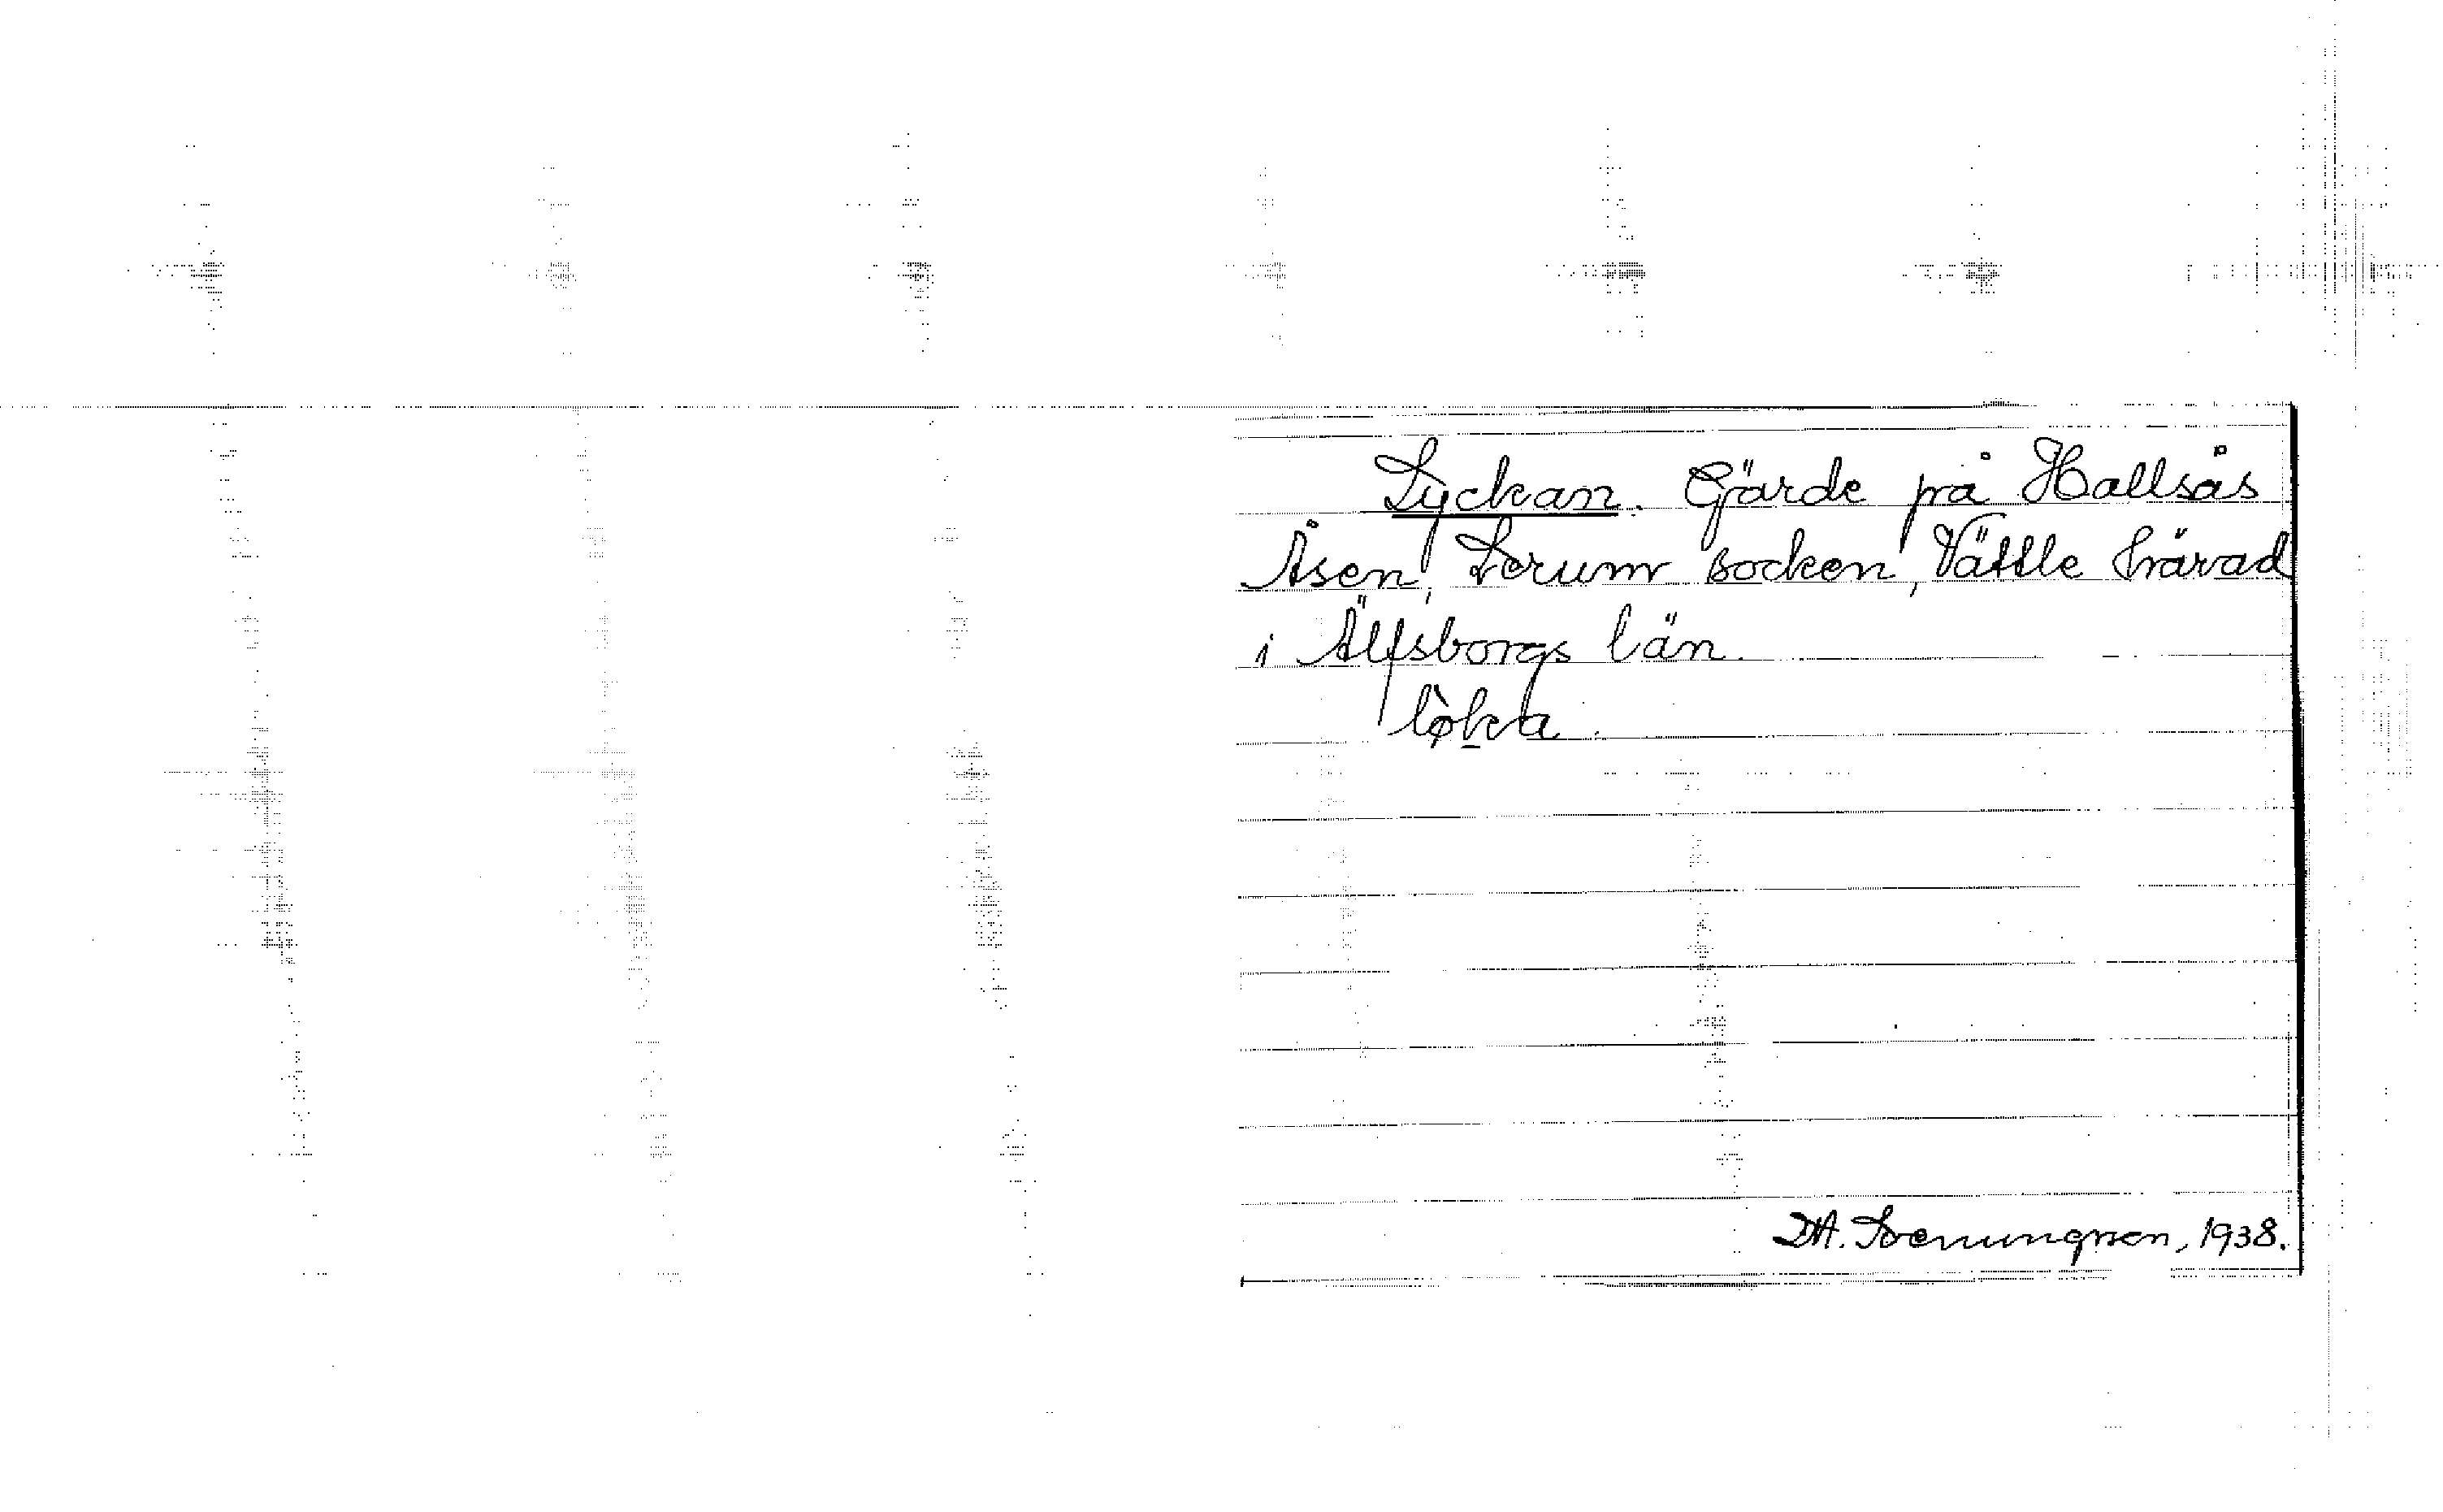 Lyckan. Gärde på Hallsås
Åsen, Lerum socken, Vättle härad
i Älfsborgs län.
lø̀ka.
1938.